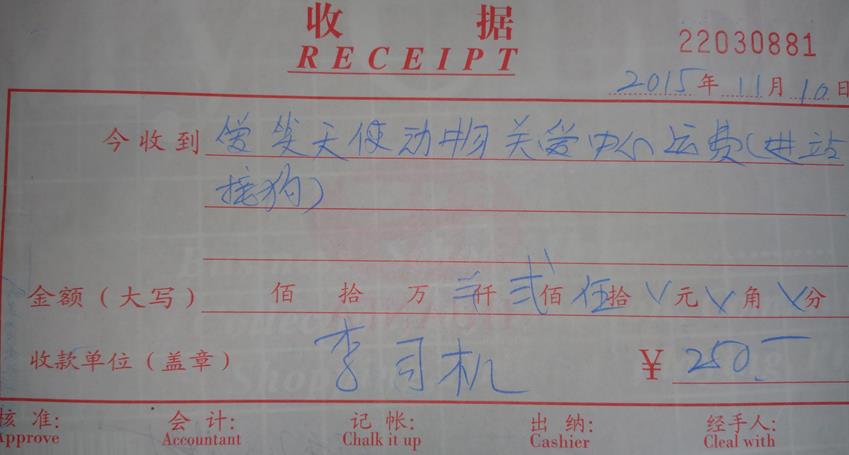 收 据
RECEIPT
22030881
2015年11月10日
今收到 天使动物关爱中心运费(进站
接狗)
金额(大写) 佰 拾 万 仟贰佰伍拾 元 角 分
收款单位(盖章) 李司机 ¥ 250.-
核 准: 会 计: 记 帐: 出 纳: 经手人:
Approve Accountant Chalk it up Cashier Cleal with